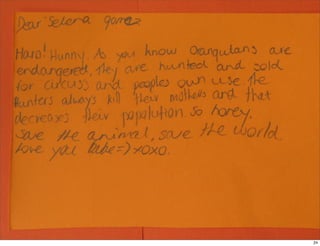 Dear Selena gomez
Haro! Hunny. As you know Orangutans are
endangered, they are hunted and sold
for circuss and peoples own use the
hunters always kill their mothers and that
decreases their popolution. so honey,
save the animal, save the world.
Love you babe=) xoxo.
29